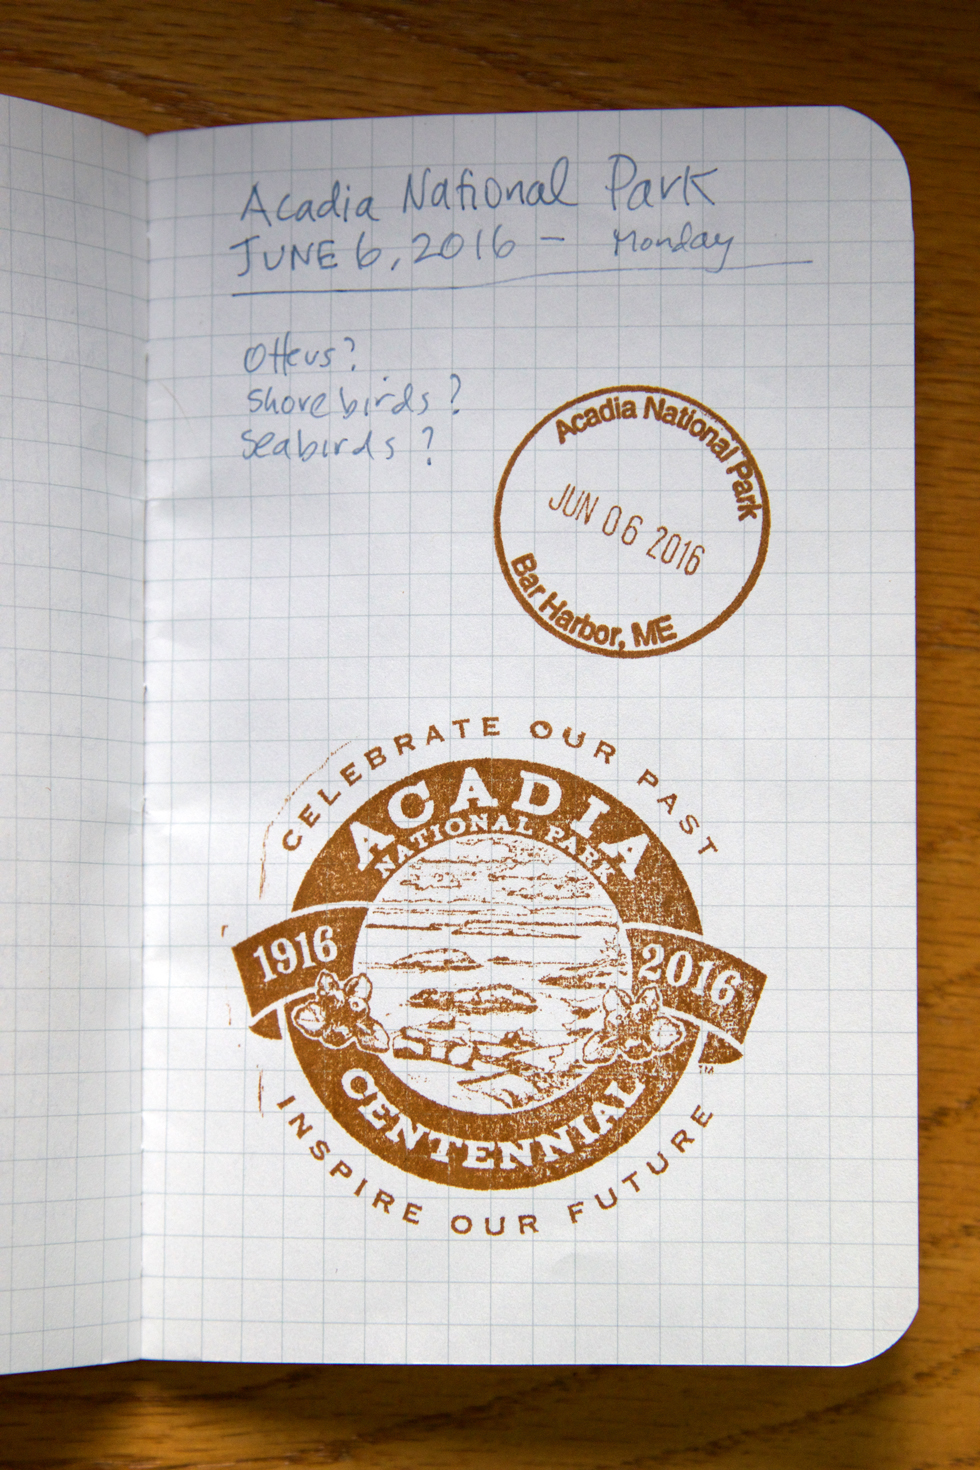 Acadia National Park
JUNE 6, 2016 - Monday
Otters?
Shorebirds?
Seabirds?
Acadia National Park
JUN 06 2016
Bar Harbor, ME
CELEBRATE OUR PAST
ACADIA
NATIONAL PARK
1916
2016
TM
CENTENNIAL
INSPIRE OUR FUTURE